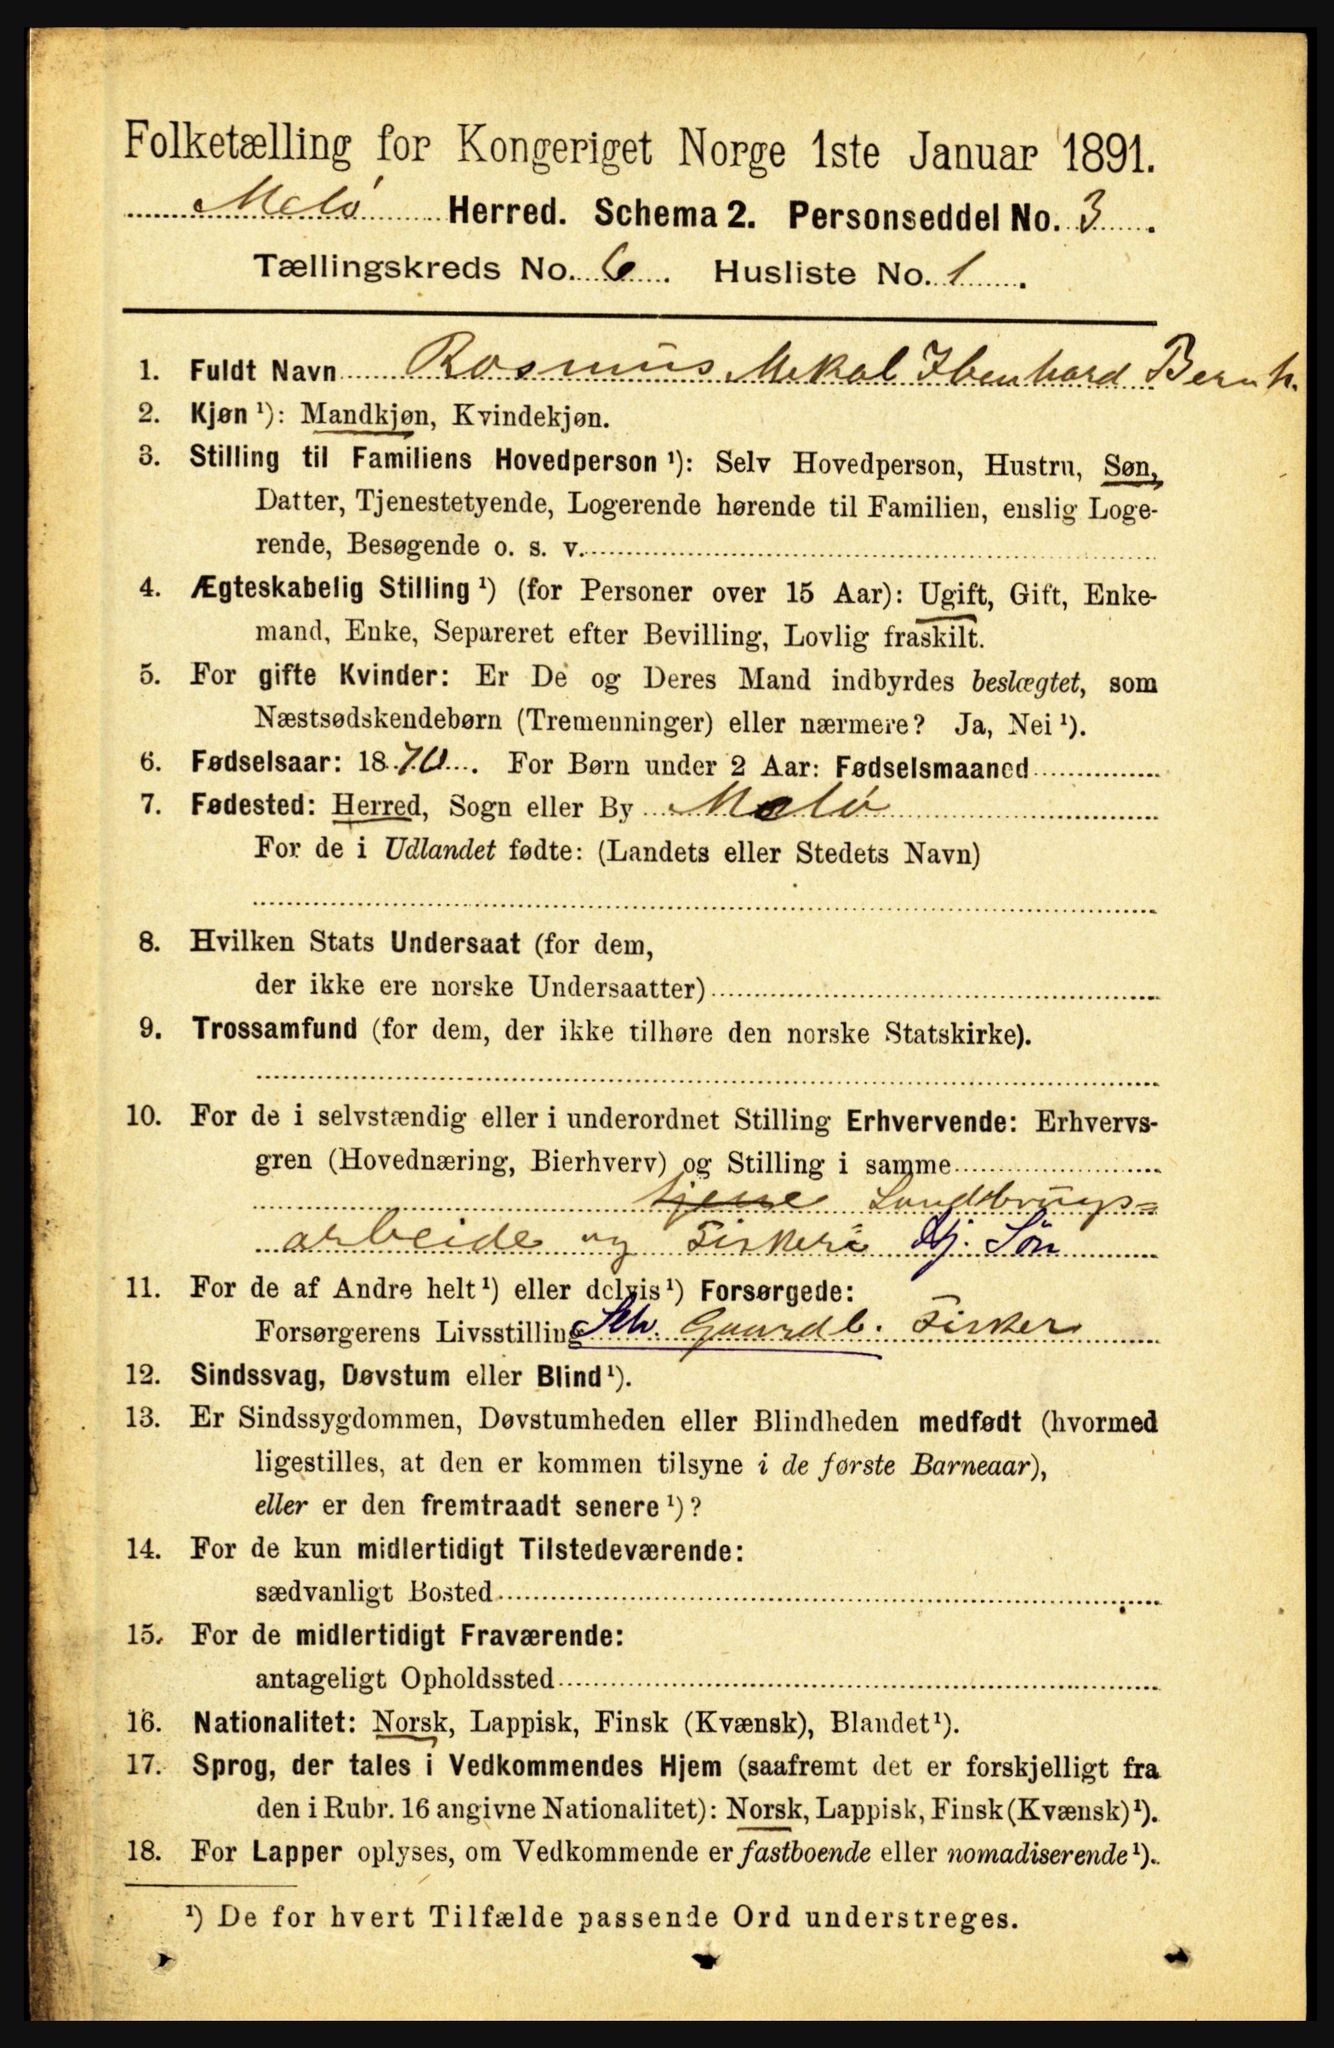 Folketælling for Kongeriget Norge 1ste Januar 1891.
Melö Herred. Schema 2. Personseddel No. 3.
Tællingskreds No. 6. Husliste No. 1.
1. Fuldt Navn Rasmus Mekal Ibenhard Bernh.
2. Kjøn ¹): Mandkjøn, Kvindekjøn.
3. Stilling til Familiens Hovedperson ¹): Selv Hovedperson, Hustru, Søn,
Datter, Tjenestetyende, Logerende hørende til Familien, enslig Loge-
rende, Besøgende o. s. v.
4. Ægteskabelig Stilling ¹) (for Personer over 15 Aar): Ugift, Gift, Enke-
mand, Enke, Separeret efter Bevilling, Lovlig fraskilt.
5. For gifte Kvinder: Er De og Deres Mand indbyrdes beslægtet, som
Næstsødskendebørn (Tremenninger) eller nærmere? Ja, Nei ¹).
6. Fødselsaar: 1870. For Børn under 2 Aar: Fødselsmaaned
7. Fødested: Herred, Sogn eller By Melö
For de i Udlandet fødte: (Landets eller Stedets Navn)
8. Hvilken Stats Undersaat (for dem,
der ikke ere norske Undersaatter)
9. Trossamfund (for dem, der ikke tilhøre den norske Statskirke).
10. For de i selvstændig eller i underordnet Stilling Erhvervende: Erhvervs-
gren (Hovednæring, Bierhverv) og Stilling i samme
tjene Landbrugs=
arbeide og Fiskeri Hj. Søn
11. For de af Andre helt ¹) eller delvis ¹) Forsørgede:
Forsørgerens Livsstilling Selv. Gaardb. Fisker
12. Sindssvag, Døvstum eller Blind ¹).
13. Er Sindssygdommen, Døvstumheden eller Blindheden medfødt (hvormed
ligestilles, at den er kommen tilsyne i de første Barneaar),
eller er den fremtraadt senere ¹)?
14. For de kun midlertidigt Tilstedeværende:
sædvanligt Bosted
15. For de midlertidigt Fraværende:
antageligt Opholdssted
16. Nationalitet: Norsk, Lappisk, Finsk (Kvænsk), Blandet ¹).
17. Sprog, der tales i Vedkommendes Hjem (saafremt det er forskjelligt fra
den i Rubr. 16 angivne Nationalitet): Norsk, Lappisk, Finsk (Kvænsk) ¹).
18. For Lapper oplyses, om Vedkommende er fastboende eller nomadiserende ¹).
¹) De for hvert Tilfælde passende Ord understreges.